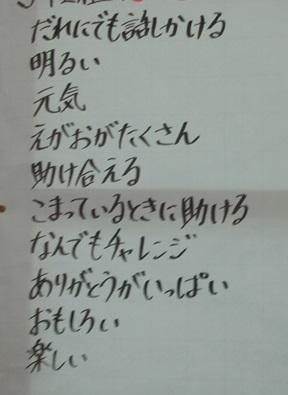 だれにでも話しかける
明るい
元気
えがおがたくさん
助け合える
こまっているときに助ける
なんでもチャレンジ
ありがとうがいっぱい
おもしろい
楽しい